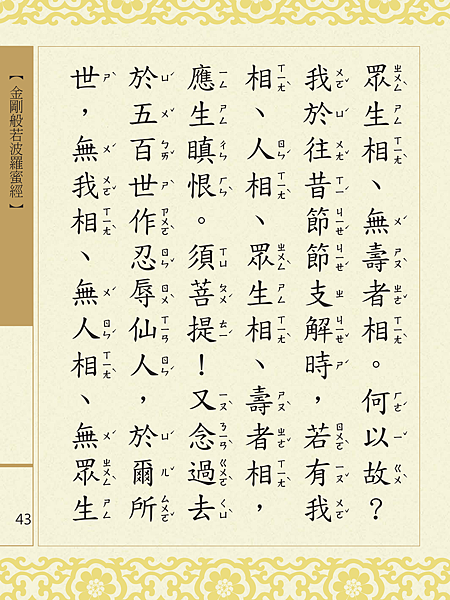 眾生相、無壽者相。何以故？
我於往昔節節支解時，若有我
相、人相、眾生相、壽者相，
應生瞋恨。須菩提！又念過去
於五百世作忍辱仙人，於爾所
世，無我相、無人相、無眾生
【金剛般若波羅蜜經】
43